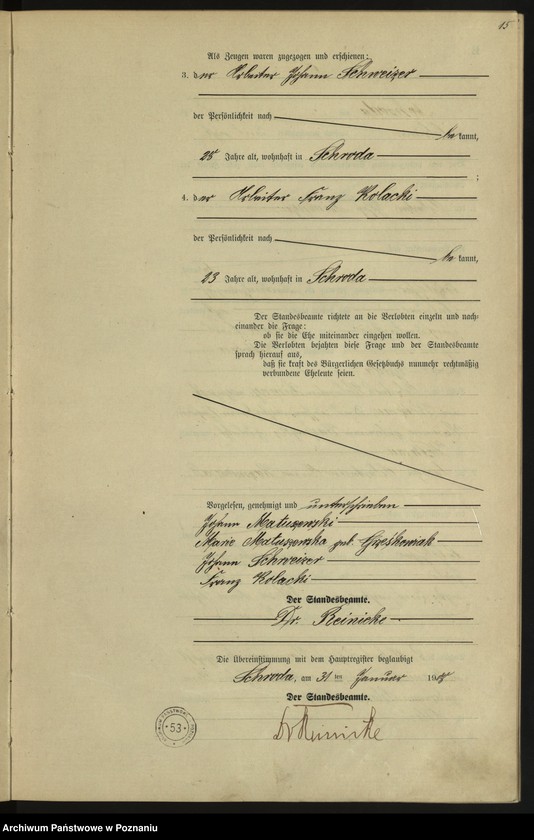 15
Als Zeugen waren zugezogen und erschienen:
3. der Arbeiter Johann Schweizer
der Persönlichkeit nach
be kannt,
25 Jahre alt, wohnhaft in Schroda
;
4. der Arbeiter Franz Kolacki
der Persönlichkeit nach
be kannt,
Jahre alt, wohnhaft in Schroda
Der Standesbeamte richtete an die Verlobten einzeln und nach-
einander die Frage:
ob sie die Ehe miteinander eingehen wollen.
Die Verlobten bejahten diese Frage und der Standesbeamte
sprach hierauf aus,
daß sie kraft des Bürgerlichen Gesetzbuchs nunmehr rechtmäßig
verbundene Eheleute seien.
Vorgelesen, genehmigt und unterschrieben
Johann Matuszewski
Marie Matuszewska geb. Grześkowiak
Johann Schweizer
Franz Kolacki
Der Standesbeamte.
Dr. Reinicke
Die Übereinstimmung mit dem Hauptregister beglaubigt
Schroda, am 31 ten Januar 190
Der Standesbeamte.
Dr Reinicke
53
Archiwum Państwowe w Poznaniu